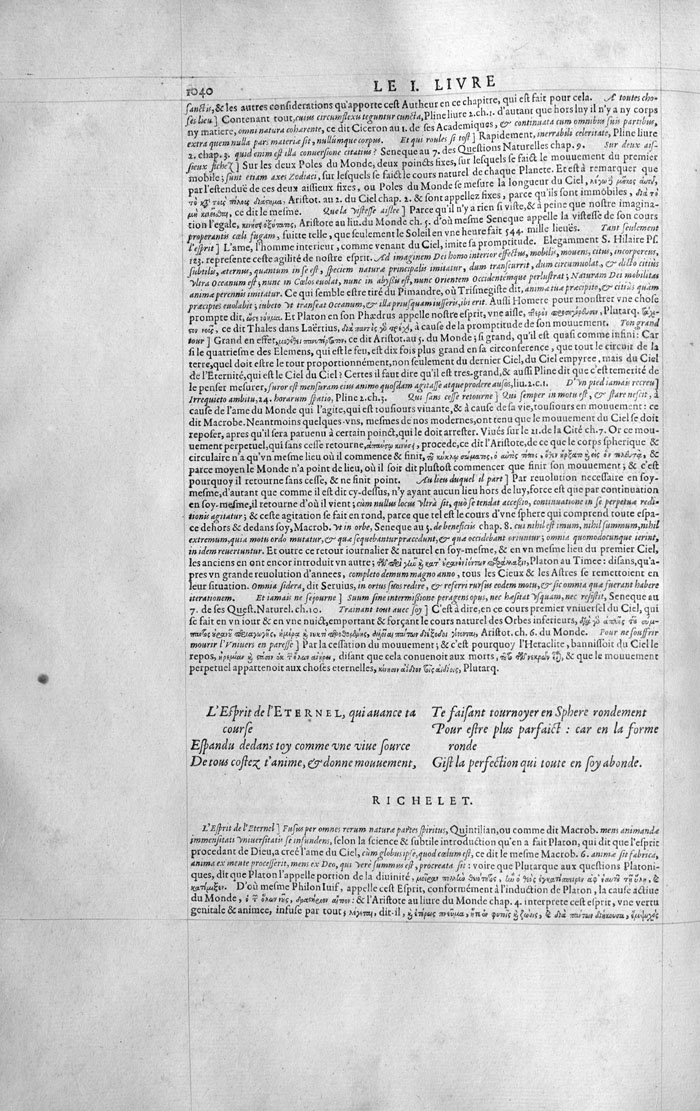 1040
LE I. LIVRE
sanctis, & les autres considerations qu'apporte cest Autheur en ce chapitre, qui est fait pour cela. A toutes cho-
ses lieu ] Contenant tout, cuius circumflexu teguntur cuncta, Pline liure 2. ch. 1. d'autant que hors luy il n'y a ny corps
ny matiere, omni natura cohærente, ce dit Ciceron au 1. de ses Academiques, & continuata cum omnibus suis partibus,
extra quem nulla pars materiæ sit, nullumque corpus. Et qui roules si tost ] Rapidement, inerrabili celeritate, Pline liure
2. chap. 3. quid enim est illa conuersione citatius? Seneque au 7. des Questions Naturelles chap. 9. Sur deux ais-
sieux fichez ] Sur les deux Poles du Monde, deux poincts fixes, sur lesquels se faict le mouuement du premier
mobile; sunt etiam axes Zodiaci, sur lesquels se faict le cours naturel de chaque Planete. Et est à remarquer que
par l'estenduë de ces deux aissieux fixes, ou Poles du Monde se mesure la longueur du Ciel,
Aristot. au 2. du Ciel chap. 2. & sont appellez fixes, parce qu'ils sont immobiles,
ce dit le mesme. Que la vistesse aislee ] Parce qu'il n'y a rien si viste, & à peine que nostre imagina-
tion l'egale, Aristote au liu. du Monde ch. 5. d'où mesme Seneque appelle la vistesse de son cours
properantis cæli fugam, fuitte telle, que seulement le Soleil en vne heure fait 544. mille lieuës. Tant seul.
l'esprit ] L'ame, l'homme interieur, comme venant du Ciel, imite sa promptitude. Elegamment S. Hilaire Ps.
123. represente ceste agilité de nostre esprit. Ad imaginem Dei homo interior effectus, mobilis, mouens, citus, incorporeus,
subtilus, æternus, quantum in se est, speciem naturæ principalis imitatur, dum transcurrit, dum circumuolat, & dicto citius
vltra Oceanum est; nunc in Cœlos euolat, nunc in abyssis est, nunc Orientem Occidentémque perlustrat; Naturam Dei mobilitas
animæ perennis imitatur. Ce qui semble estre tiré du Pimandre, où Trismegiste dit, animæ tuæ præcipito, & citiùs quàm
præcipies euolabit; iubeto vt transeat Oceanum, & illa priusquam iusseris, ibi erit. Aussi Homere pour monstrer vne chose
prompte dit, Et Platon en son Phædrus appelle nostre esprit, vne aisle, Plutarq.
ce dit Thales dans Laërtius, à cause de la promptitude de son mouuement. Ton grand
tour ] Grand en effet, ce dit Aristot. au 5. du Monde; si grand, qu'il est quasi comme infini: Car
si le quatriesme des Elemens, qui est le feu, est dix fois plus grand en sa circonference, que tout le circuit de la
terre, quel doit estre le tour proportionnément, non seulement du dernier Ciel, du Ciel empyree, mais du Ciel
de l'Eternité, qui est le Ciel du Ciel? Certes il faut dire qu'il est tres-grand, & aussi Pline dit que c'est temerité de
le penser mesurer, furor est mensuram eius animo quosdam agitasse atque prodere ausos, liu. 2. c. 1. D'vn pied iamais recreu ]
Irrequieto ambitu, 24. horarum spatio, Pline 2. ch. 3. Qui sans cesse retourne ] Qui semper in motu est, & stare nescit, à
cause de l'ame du Monde qui l'agite, qui est tousiours viuante, & à cause de sa vie, tousiours en mouuement: ce
dit Macrobe. Neantmoins quelques-vns, mesmes de nos modernes, ont tenu que le mouuement du Ciel se doit
reposer, apres qu'il sera paruenu à certain poinct, qui le doit arrester. Viués sur le 21. de la Cité ch. 7. Or ce mou-
uement perpetuel, qui sans cesse retourne, procede, ce dit l'Aristote, de ce que le corps spherique &
circulaire n'a qu'vn mesme lieu où il commence & finit, &
parce moyen le Monde n'a point de lieu, où il soit dit plustost commencer que finir son mouuement; & c'est
pourquoy il retourne sans cesse, & ne finit point. Au lieu duquel il part ] Par reuolution necessaire en soy-
mesme, d'autant que comme il est dit cy-dessus, n'y ayant aucun lieu hors de luy, force est que par continuation
en soy-mesme, il retourne d'où il vient; cùm nullus locus vltrà sit, quò se tendat accessio, continuatione in se perpetuæ redi-
tionis agitatur; & ceste agitation se fait en rond, parce que tel est le cours d'vne sphere qui comprend toute espa-
ce dehors & dedans soy, Macrob. Vt in orbe, Seneque au 5. de beneficiis chap. 8. cui nihil est imum, nihil summum, nihil
extremum, quia motu ordo mutatur, & quæ sequebantur præcedunt, & quæ occidebant oriuntur; omnia quomodocunque ierint,
in idem reuertuntur. Et outre ce retour iournalier & naturel en soy-mesme, & en vn mesme lieu du premier Ciel,
les anciens en ont encor introduit vn autre; Platon au Timee: disans, qu'a-
pres vn grande reuolution d'annees, completo demum magno anno, tous les Cieux & les Astres se remettroient en
leur situation. Omnia sidera, dit Seruius, in ortus suos redire, & referri rursus eodem motu, & sic omnia quæ fuerant habere
iterationem. Et iamais ne sejourne ] Suum sine intermissione peragens opus, nec hæsitat vsquam, nec resistit, Seneque au
7. de ses Quest. Naturel. ch. 10. Trainant tout auec soy ] C'est à dire, en ce cours premier vniuersel du Ciel, qui
se fait en vn iour & en vne nuict, emportant & forçant le cours naturel des Orbes inferieurs,
Aristot. ch. 6. du Monde. Pour ne souffrir
mourir l'Vniuers en paresse ] Par la cessation du mouuement; & c'est pourquoy l'Heraclite, bannissoit du Ciel le
repos, disant que cela conuenoit aux morts, & que le mouuement
perpetuel appartenoit aux choses eternelles, Plutarq.
L'Esprit de l'ETERNEL, qui auance ta
course
Espandu dedans toy comme vne viue source
De tous costez t'anime, & donne mouuement,
Te faisant tournoyer en Sphere rondement
Pour estre plus parfaict: car en la forme
ronde
Gist la perfection qui toute en soy abonde.
RICHELET.
L'Esprit de l'Eternel ] Fusus per omnes rerum naturæ partes spiritus, Quintilian, ou comme dit Macrob. mens animandæ
immensitati Vniuersitatis se infundens, selon la science & subtile introduction qu'en a fait Platon, qui dit que l'esprit
procedant de Dieu, a creé l'ame du Ciel, cùm globus ipse, quod cælum est, ce dit le mesme Macrob. 6. animæ sit fabrica,
anima ex mente processerit, mens ex Deo, qui verè summus est, procreata sit: voire que Plutarque aux questions Platoni-
ques, dit que Platon l'appelle portion de la diuinité,
D'où mesme Philon Iuif, appelle cest Esprit, conformément à l'induction de Platon, la cause actiue
du Monde, & l'Aristote au liure du Monde chap. 4. interprete cest esprit, vne vertu
genitale & animee, infuse par tout; dit-il,